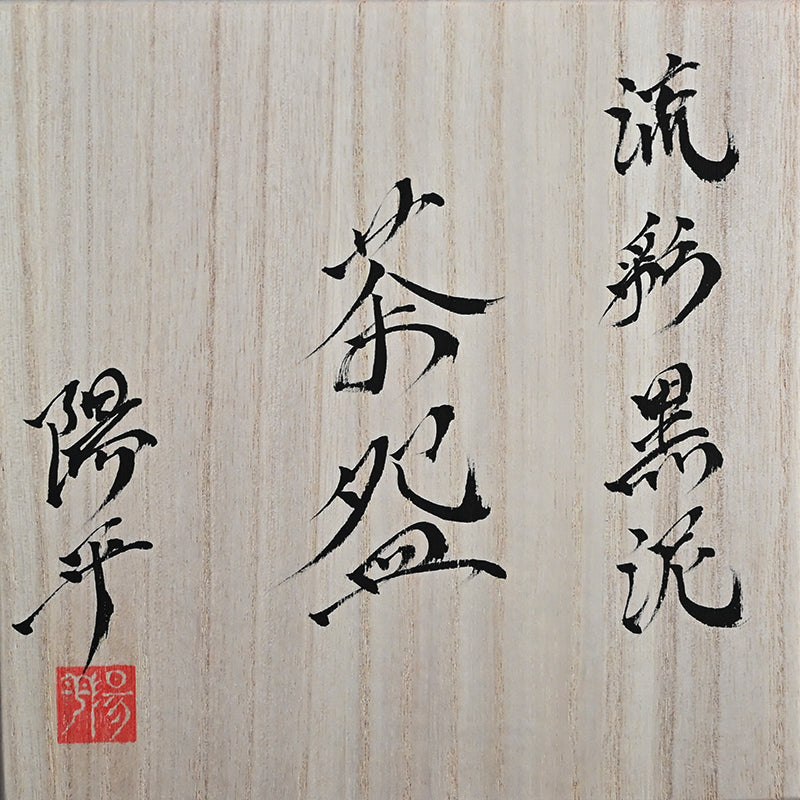 流彩黒泥
茶盌
陽平
陽平